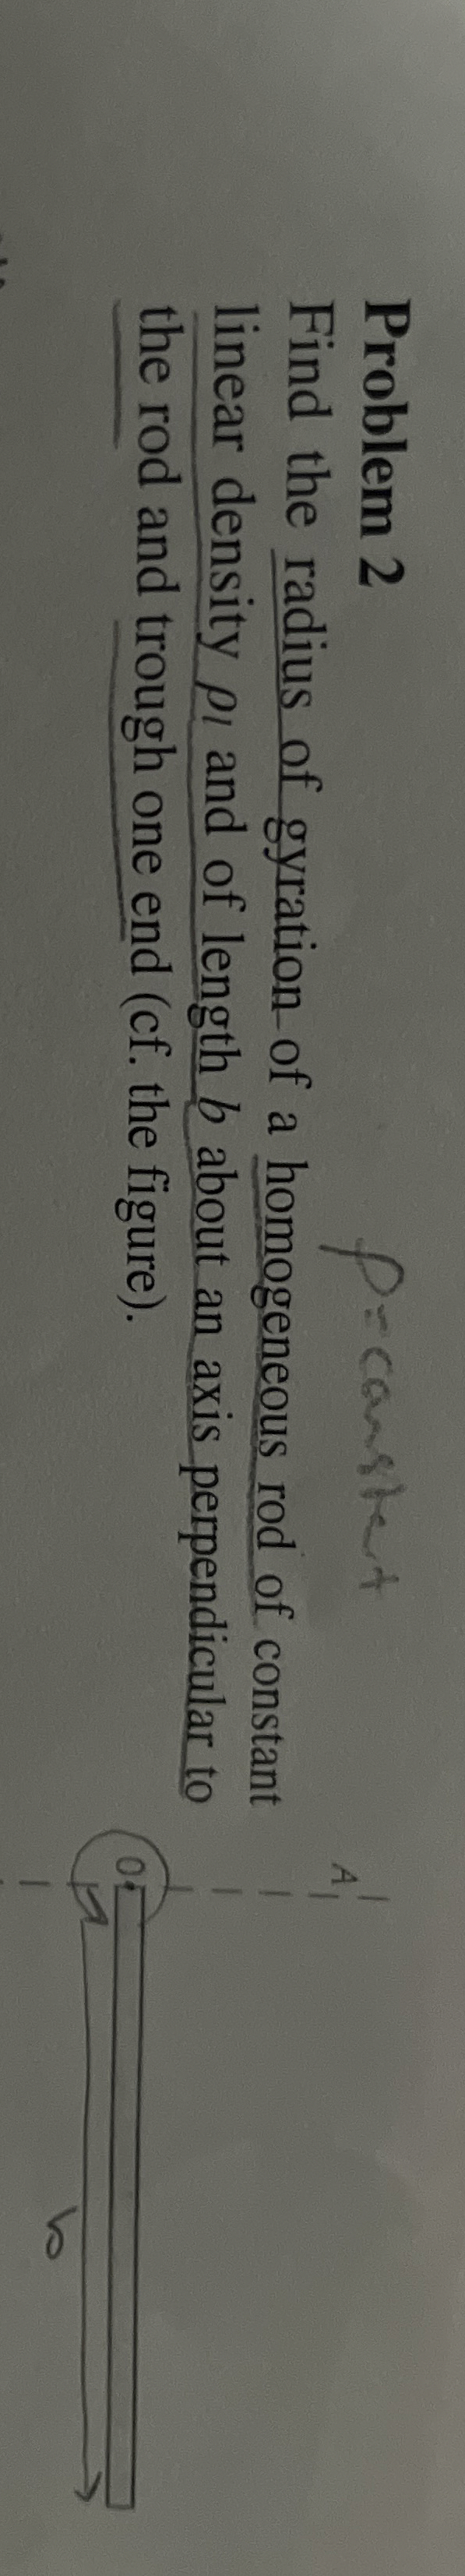 Problem 2
ρ = constant
Find the radius of gyration of a homogeneous rod of constant
linear density ρl and of length b about an axis perpendicular to
the rod and trough one end (cf. the figure).
A
O
b